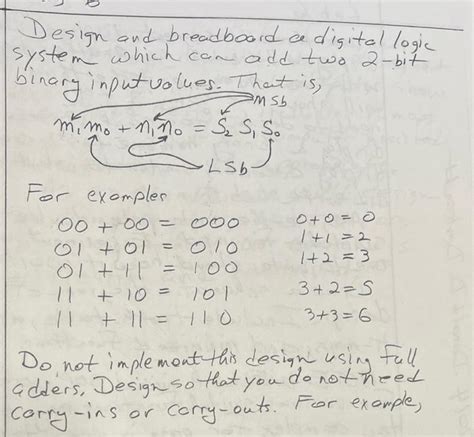 Design and breadboard a digital logic
system which can add two 2-bit
binary input values. That is,
MSb
m₁m₀ + n₁n₀ = S₂ S₁ S₀
LSb
For example
00 + 00 = 000 0+0 = 0
01 + 01 = 010 1+1 = 2
01 + 11 = 100 1+2 = 3
11 + 10 = 101 3+2 = 5
11 + 11 = 110 3+3 = 6
Do not implement this design using full
adders. Design so that you do not need
carry-ins or carry-outs. For example,